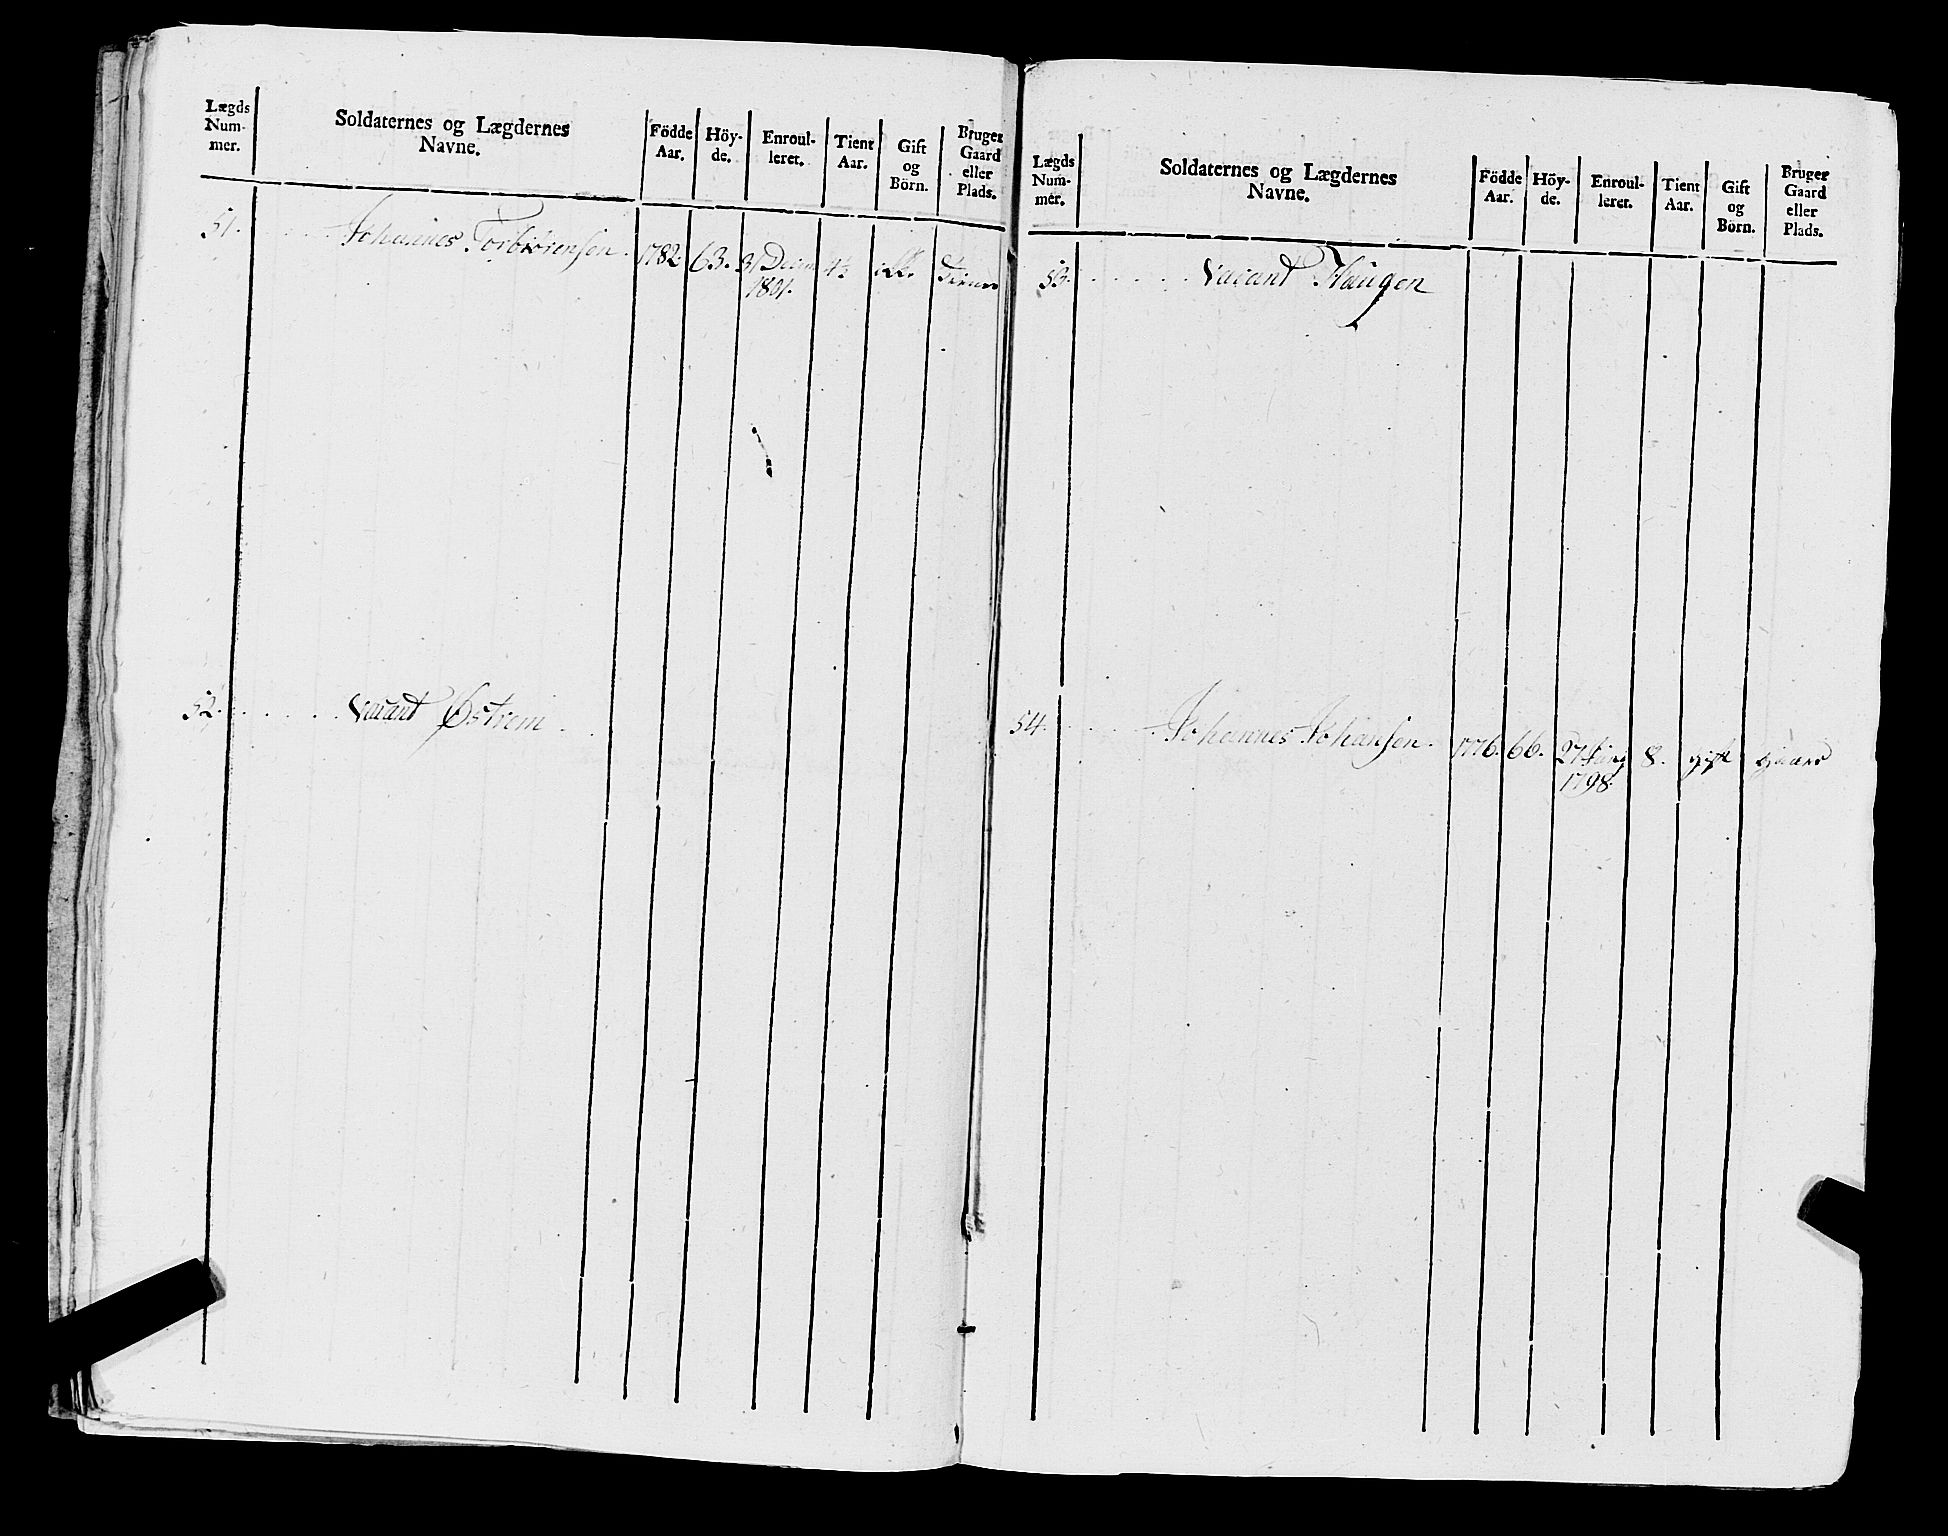 Lægds
Num-
mer.
Soldaternes og Lægdernes
Navne.
Födde
Aar.
Höy-
de.
Enroul-
leret.
Tient
Aar.
Gift
og
Börn.
Bruger
Gaard
eller
Plads.
51. Johannes Torbiörensen. 1782. 63. 31 Decem 4½
1801.
52. Vacant Østrem
Lægds
Num-
mer.
Soldaternes og Lægdernes
Navne.
Födde
Aar.
Höy-
de.
Enroul-
leret.
Tient
Aar.
Gift
og
Börn.
Bruger
Gaard
eller
Plads.
53. Vacant Haugen
54. Johannes Johansen. 1776. 66. 27 Juny 8. gift
1798.